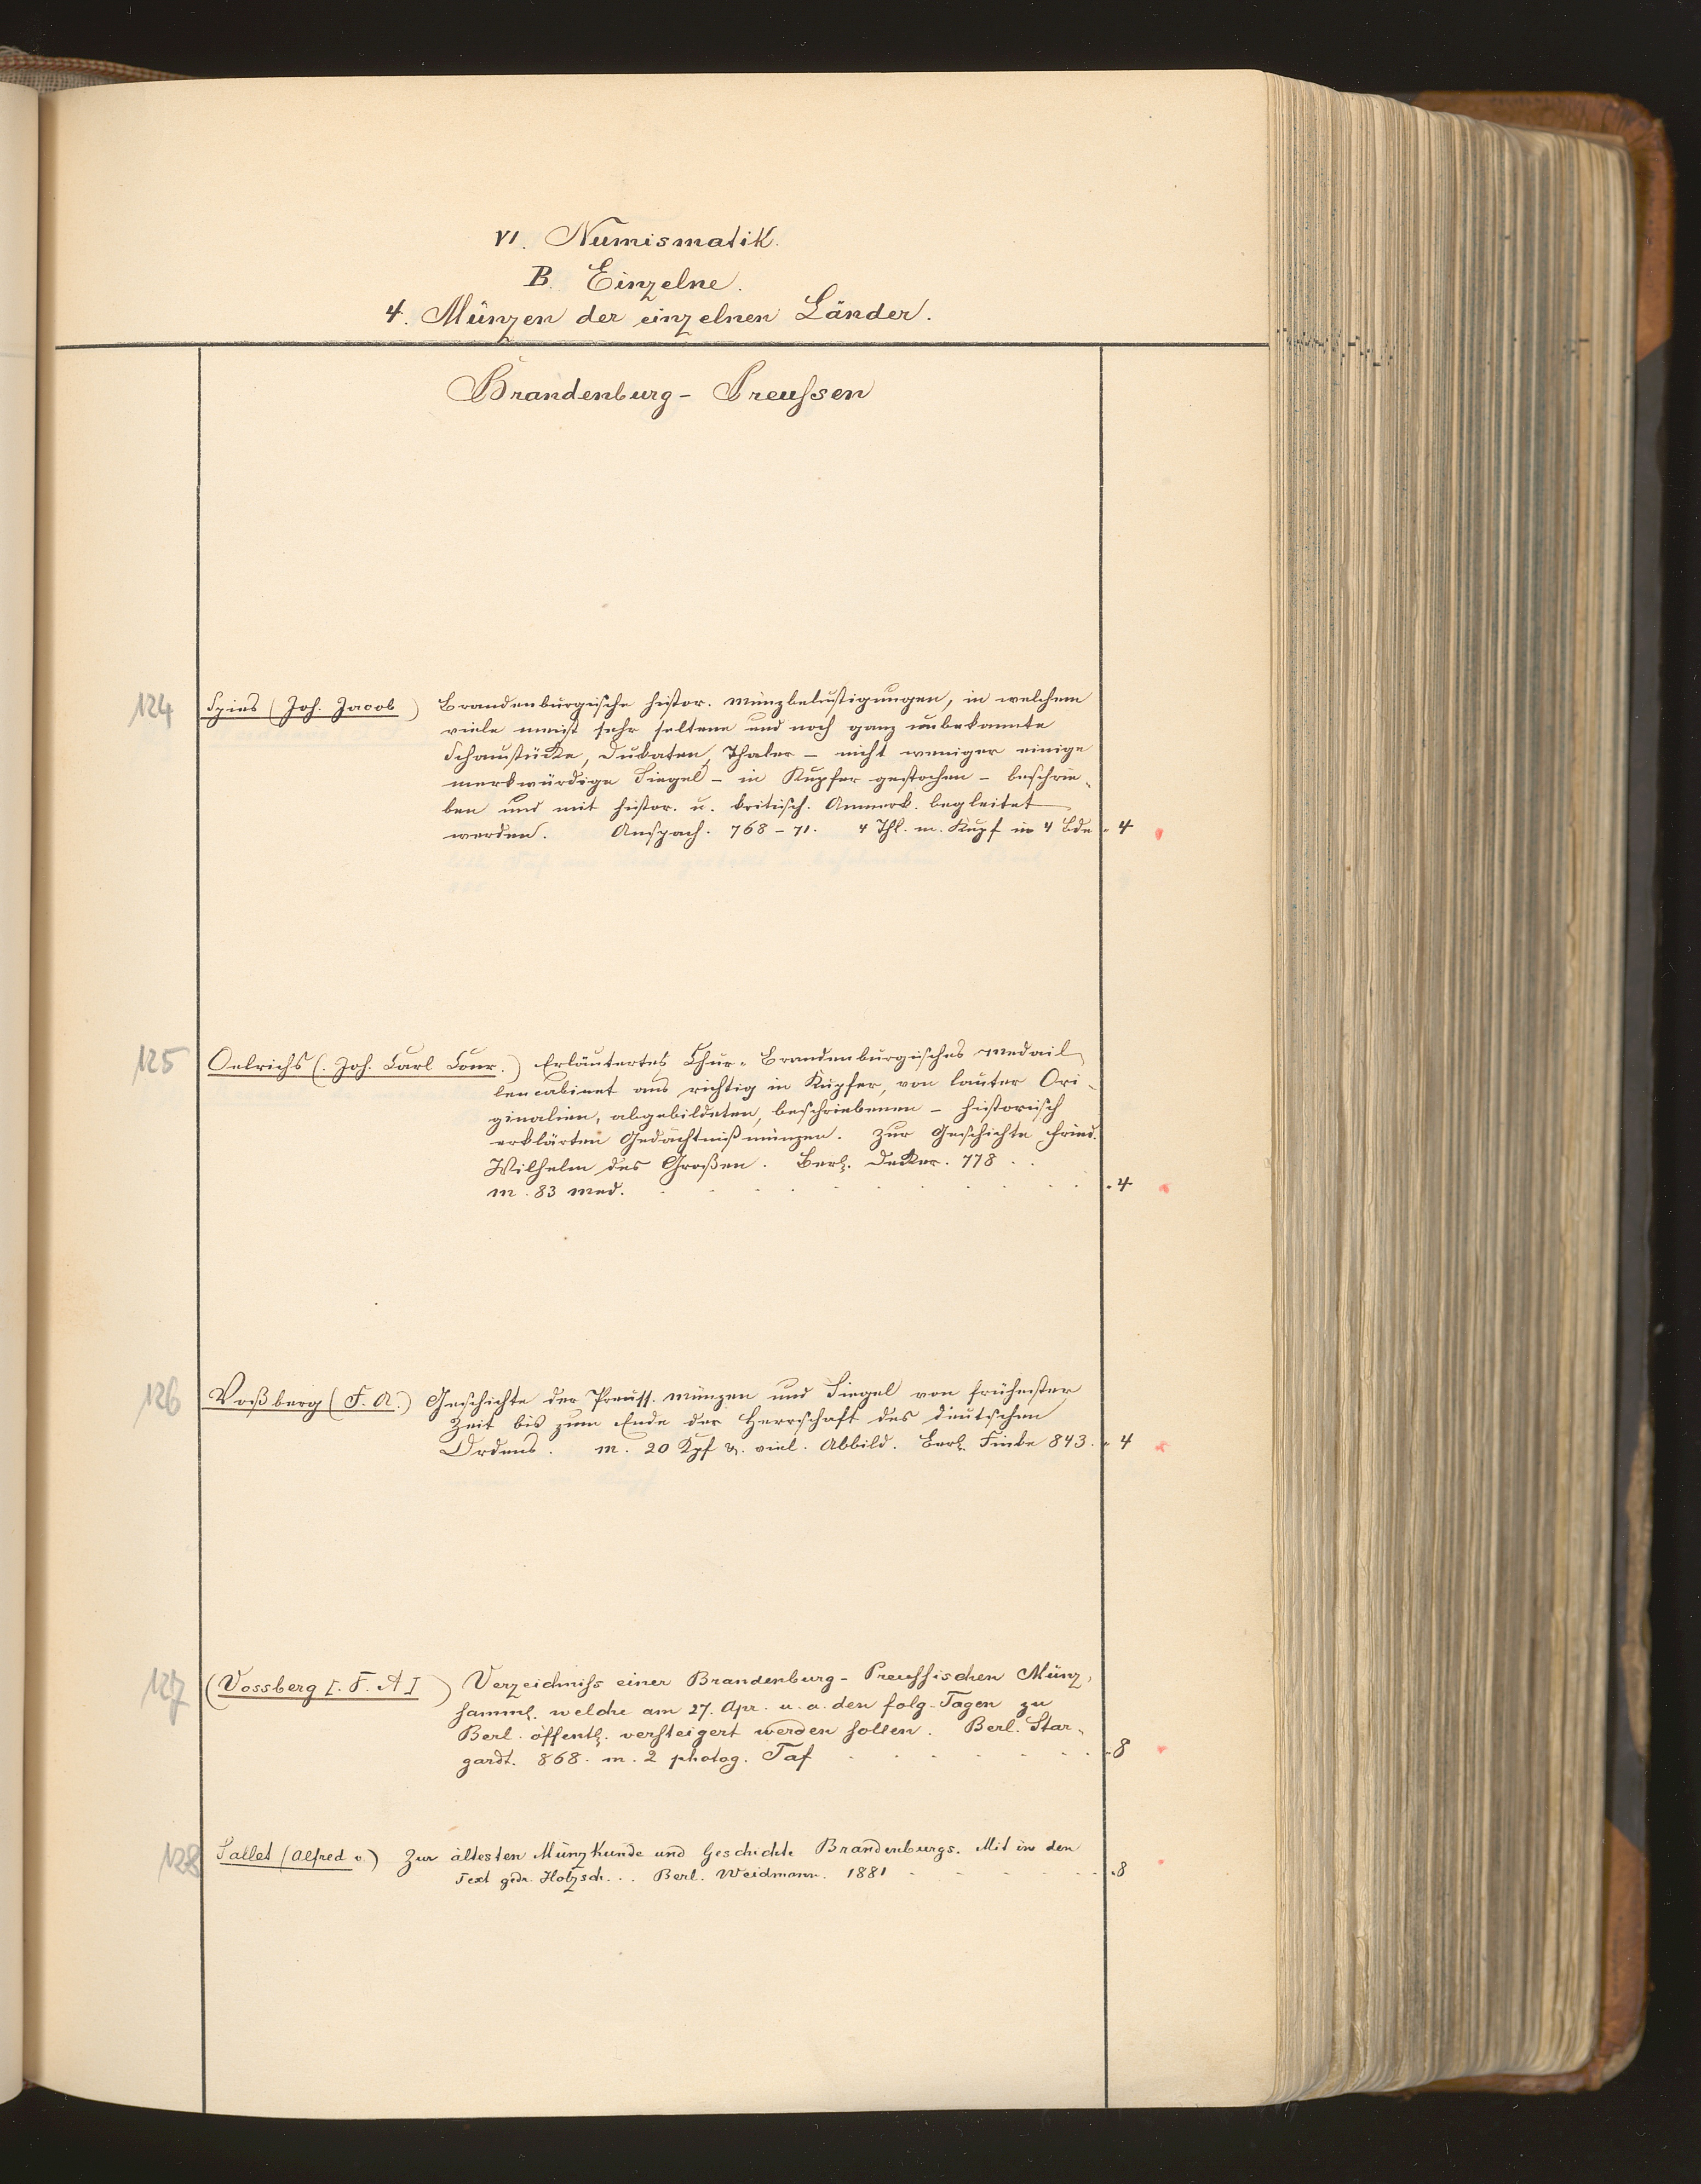 VI. Numismatik.
B. Einzelne.
4. Münzen der einzelnen Länder.
Brandenburg - Preußen
124 Spies (Joh. Jacob) Brandenburgische histor. Münzbelustigungen, in welchem
viele meist sehr seltene und noch ganz unbekannte
Schaustücke, Dukaten, Thaler – nicht weniger einige
merkwürdige Siegel – in Kupfer gestochen – beschrie-
ben und mit histor. u. kritisch. Anmerk. begleitet
werden. Anspach. 768-71. 4 Thl. m. Kupf in 4 Bde. 4
125 Oelrichs (Joh. Carl Conr.) Erläutertes Chur-Brandenburgisches Medail
lencabinet aus richtig in Kupfer, von lauter Ori-
ginalien, abgebildeten, beschriebenen – historisch
erklärten Gedächtnißmünzen. Zur Geschichte Fried.
Wilhelm des Großen. Berl. Decker. 778 . .
m. 83 Med. . 4
126 Voßberg (F. A.) Geschichte der Preuss. Münzen und Siegel von frühester
Zeit bis zum Ende der Herrschaft des deutschen
Ordens. M. 20 Kpf u. viel. Abbild. Berl. Finke 843. 4
127 (Vossberg [. F. A]) Verzeichniß einer Brandenburg-Preußischen Münz-
samml. welche am 27. Apr. u. a. den folg. Tagen zu
Berl. öffentl. versteigert werden sollen. Berl. Star-
gardt. 868. m. 2 photog. Taf . 8
128 Sallet (Alfred v.) Zur ältesten Münzkunde und Geschichte Brandenburgs. Mit in den
Text gedr. Holzsch... Berl. Weidmann. 1881 . 8